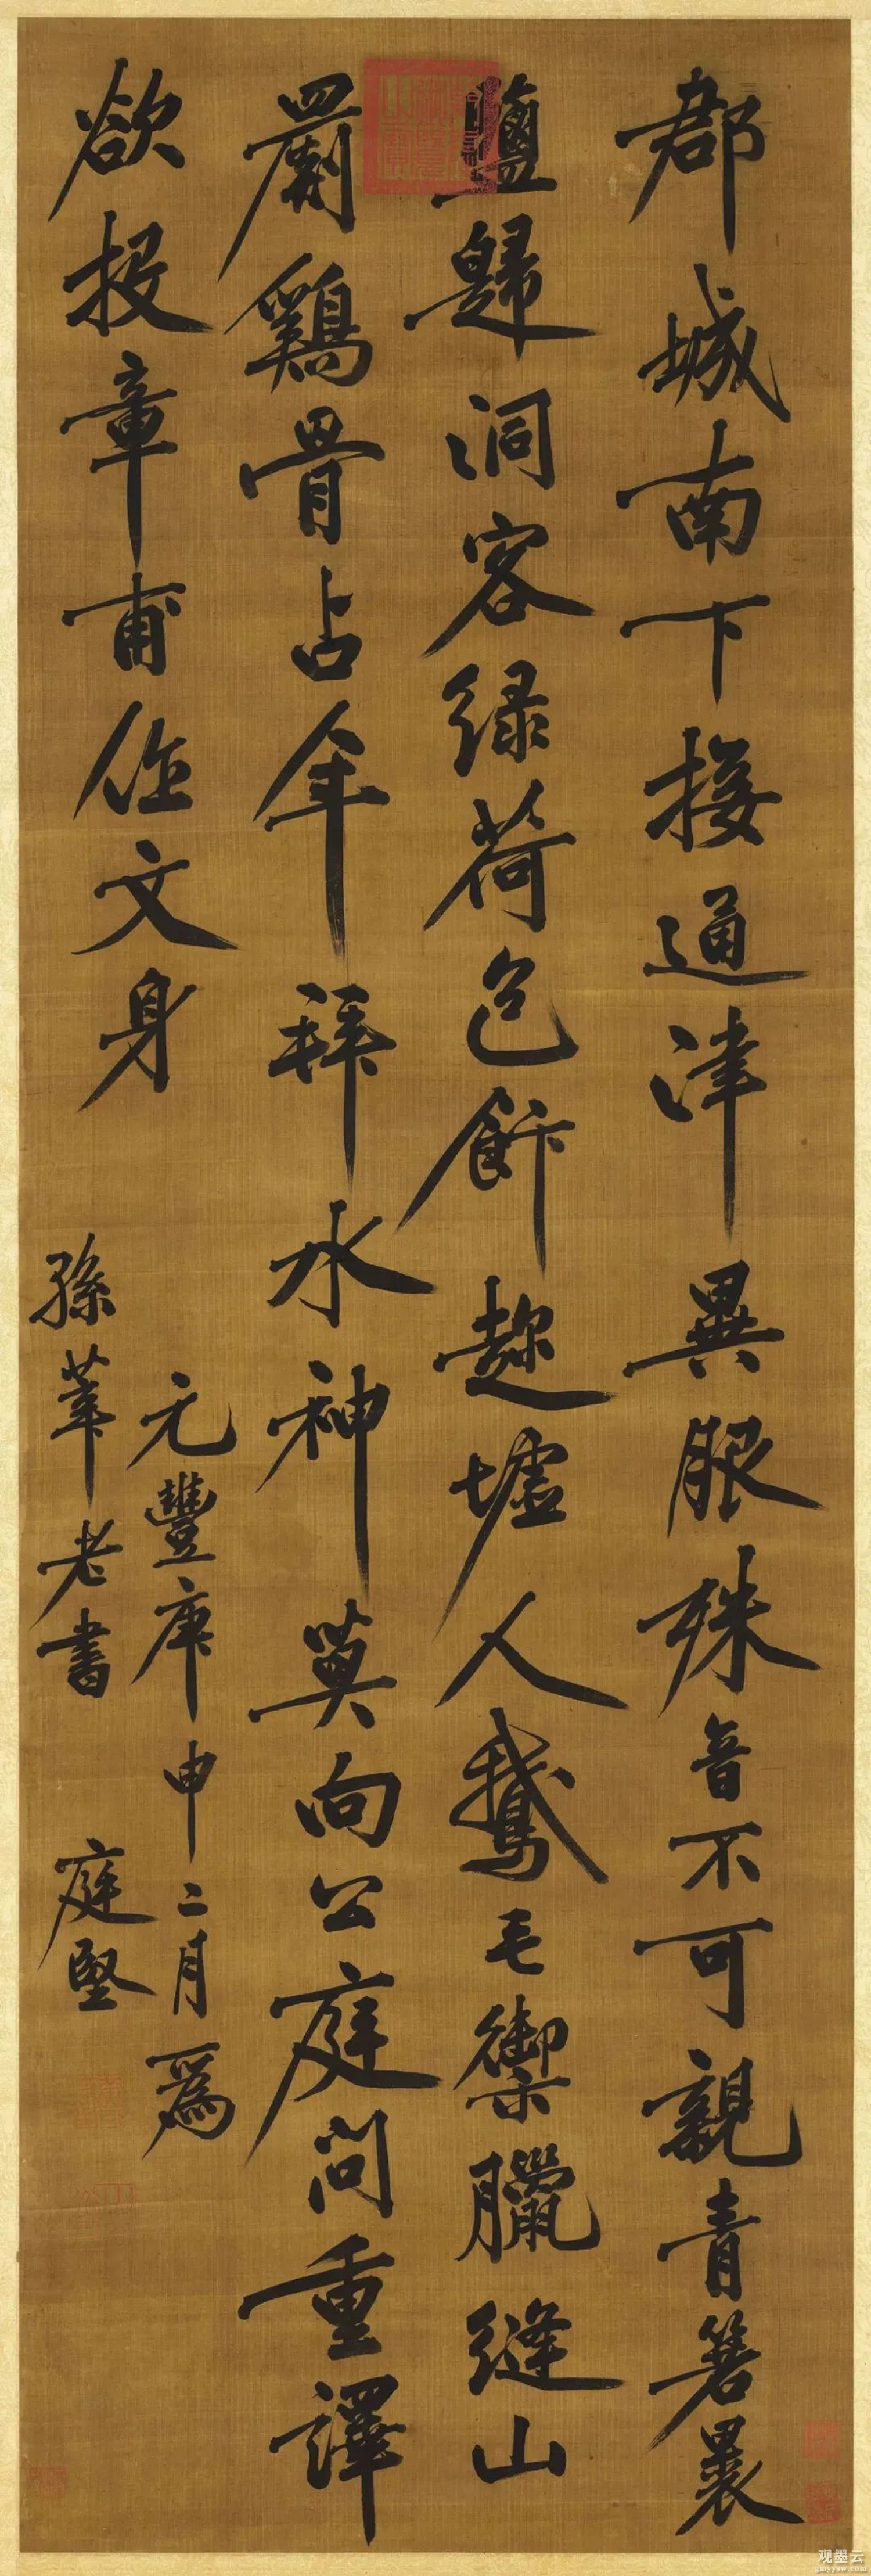 郡城南下接通津異服殊音不可親青箬裹
鹽歸洞客緑荷包飰趂墟人鵝毛禦臘縫山
罽鷄骨占年拜水神莫向公庭問重譯
欲投章甫作文身
元豐庚申二月為
孫莘老書
庭堅
观墨云
gmyysw.com